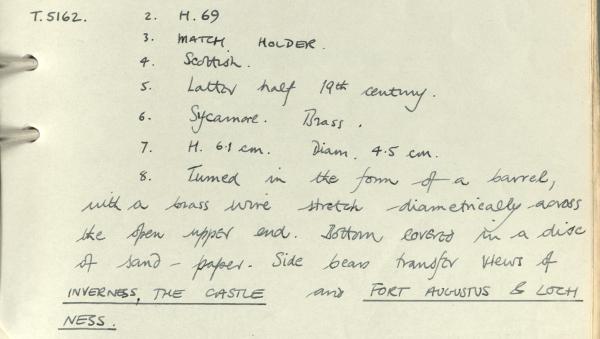 T.5162. 2. H.69
3. MATCH HOLDER.
4. Scottish.
5. Latter half 19th century.
6. Sycamore. Brass.
7. H. 6.1 cm. Diam. 4.5 cm.
8. Turned in the form of a barrel,
with a brass wire stretch diametrically across
the open upper end. Bottom covered in a disc
of sand-paper. Side bears transfer views of
INVERNESS, THE CASTLE and FORT AUGUSTUS & LOCH
NESS.